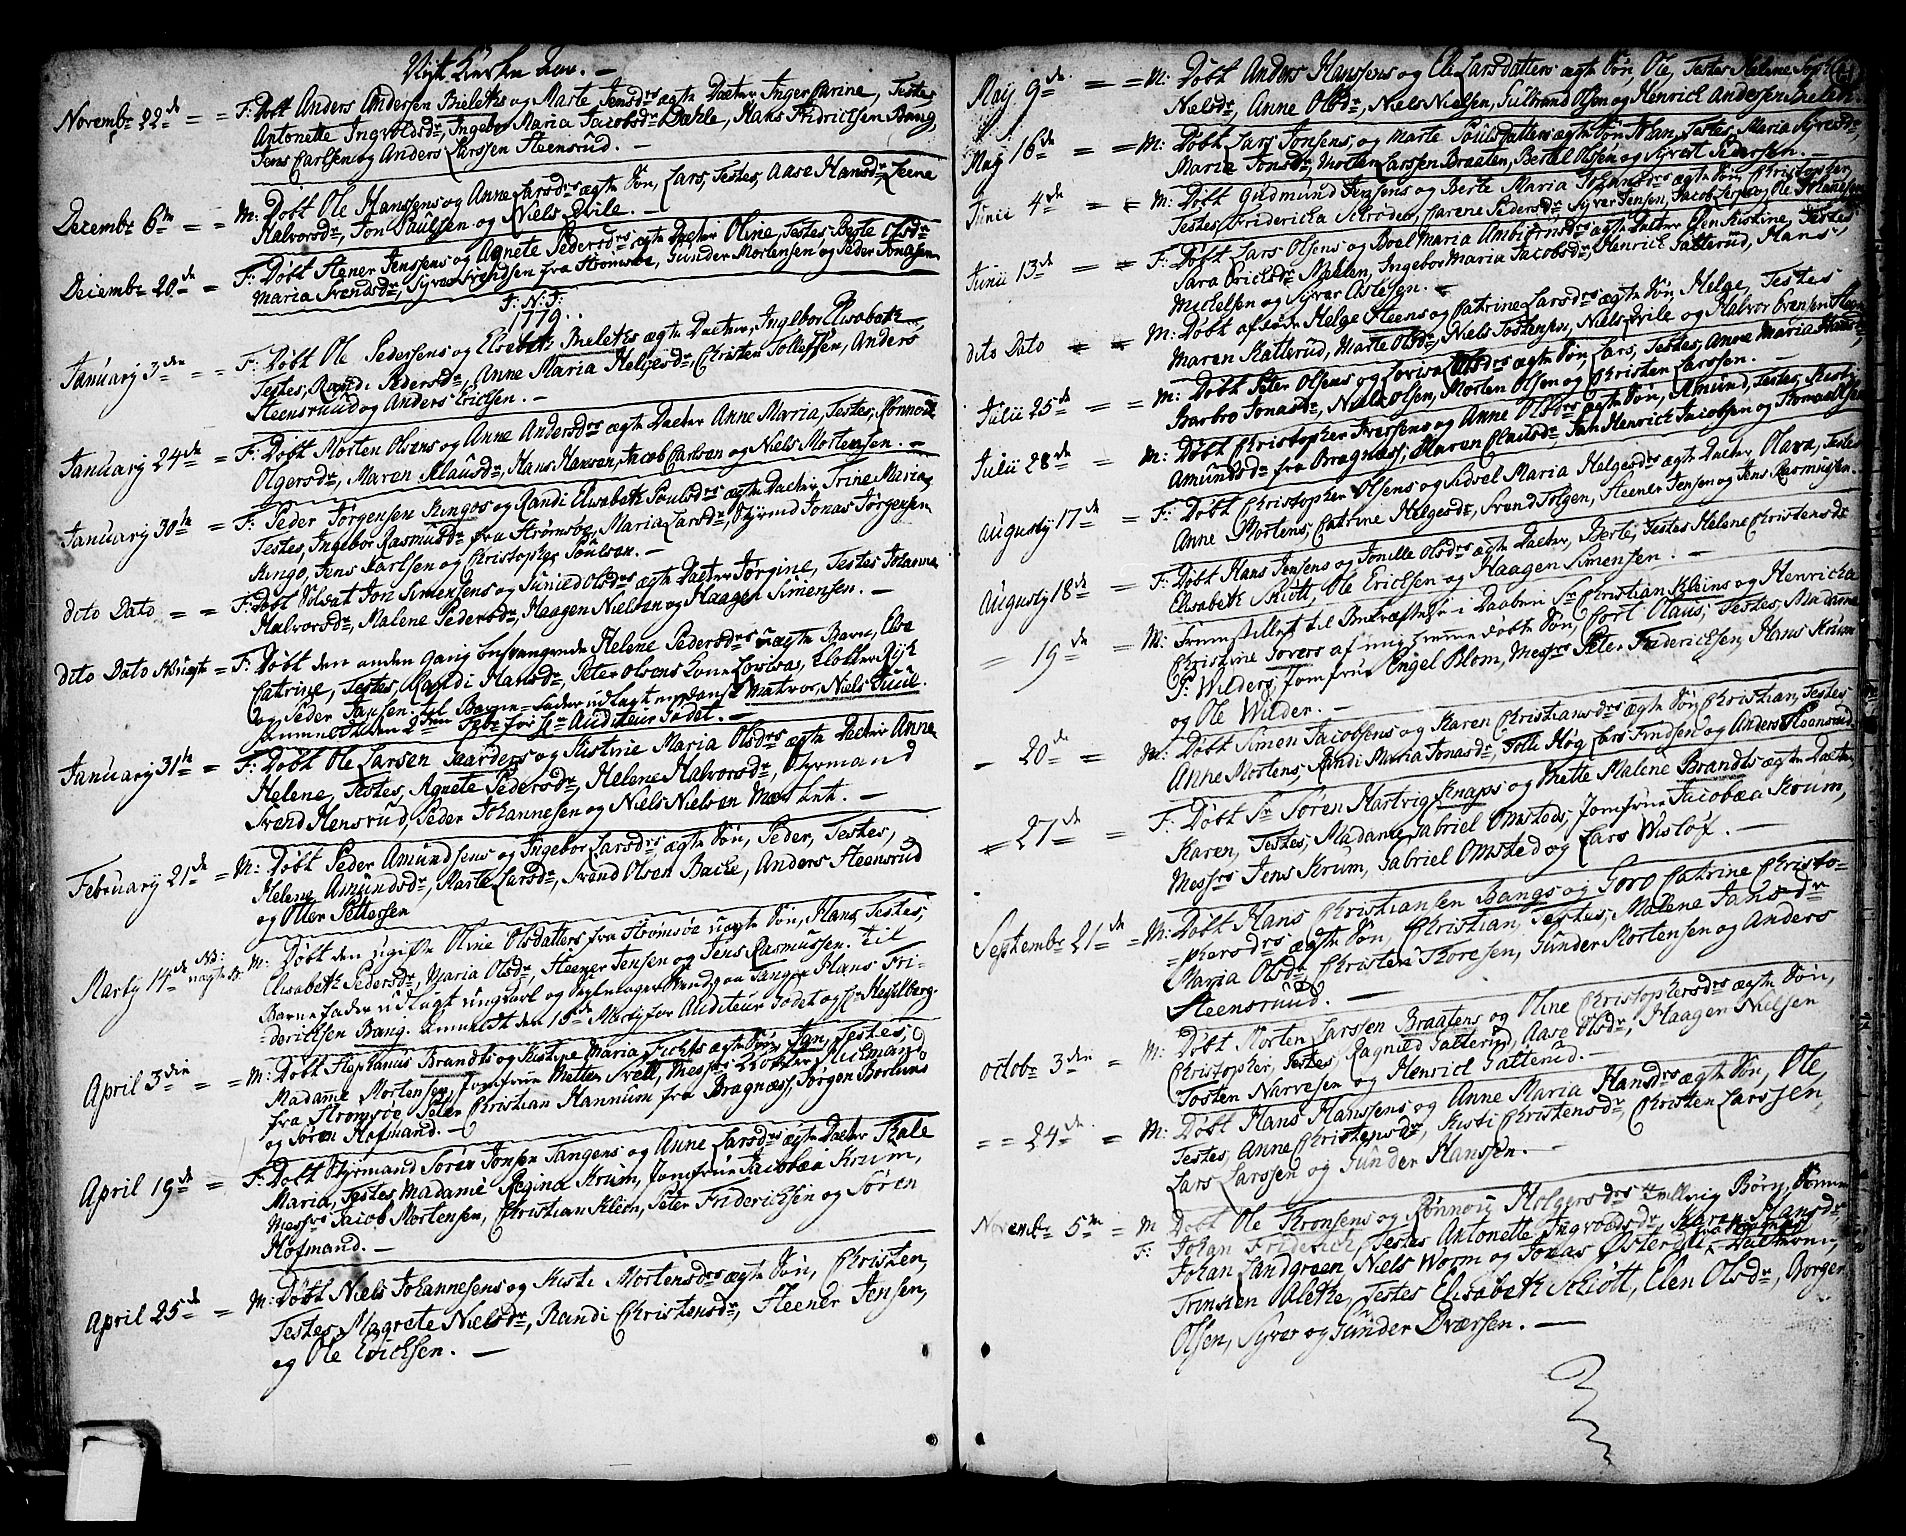 Nyt Kirke Aar. —
Novembr 22de = = F: Døbt Anders Andersen Bieleths og Marte Jensdrs ægte Datter Inger Carine, Testes
Antonette Ingvoldsdr, Ingebor Maria Jacobsdr Dahle, Hans Fridrichsen Bang,
Jens Carlsen og Anders Larssen Steensrud. —
Decembr 6te = = M: Døbt Ole Hanssens og Anne Larsdrs ægte Søn, Lars, Testes, Aase Hansdr, Leene
Halvorsdr, Jon Paulsen og Niels Qvile. —
Deiembr 20de = F: Døbt Stener Jenssens og Agnete Pedersdrs ægte Datter Oline, Testes Berte Olsdr
Maria Svendsdr, Syver Svendsen fra Strømsøe, Gunder Mortensen og Peder Jonassen
F: N: J:
1779.
Januarij 3die = = F: Døbt Ole Pedersens og Elsebeth Bieleths ægte Datter, Ingebor Elisabeth
Testes, Randi Pedersdr, Anne Maria Helgesdr, Christen Tollefsen, Anders
Steensruud og Anders Ericksen. —
Januarij 24de = F: Døbt Morten Olsens og Anne Andersdrs ægte Datter Anne Maria, Testes, Rønnov
Olgersdr, Maren Klausdr, Hans Hansen, Jacob Carlsen og Niels Mortensen. —
Januarij 30te = F: Peder Jørgensens Kingos og Randi Elisabeth Poulsdrs ægte Datter Trine Maria,
Testes, Ingebor Rasmusdr fra Strømsøe, Maria Larsdr, Styrmd Jonas Jørgensen
Kingo, Jens Karlsen og Christopher Poulsen. —
dito Dato = = F: Døbt Soldat Jon Simensens og Gunied Olsdrs ægte Datter Jørgine, Testes Johanna
Halvorsdr, Malene Pedersdr, Haagen Nielsen og Haagen Simensen. —
dito Dato Nægte = F: Døbt den anden gang besvangrede Helene Pedersdrs uægte Barn, Else
Catrine, Testes, Randi Hansdr, Peter Olsens Kone Lovisa, Klokker Ryh
og Peder Jansen. til Barne-Fader udlagt en dansk Matros, Niels Juul.
anmeldt den 2den Febr for Hr Auditeur Godet. —
Januarij 31te = F: Døbt Ole Larsen Gaarders og Kistine Maria Olsdrs ægte Datter Anne
Helene, Testes, Agnete Pedersdr, Helene Halvorsdr, Styrmand
Svend Hensrud, Peder Johannesen og Niels Nielsen
Februarij 21de = M: Døbt Peder Amundsens og Ingebor Larsdrs ægte Søn, Peder, Testes,
Helene Amundsdr, Marte Larsdr, Svend Olsen Bache, Anders Steensrud
og Otter Pettersen
Martij 14de NB: uægte M: Døbt den ugifte Oline Olsdatters fra Strømsøe uægte Søn, Hans, Testes,
Elisabeth Pedersdr, Maria Olsdr, Steener Jensen og Jens Rasmussen. til
Barnefader udlagt ungkarl og Seylmager Svend paa Tangen Hans Fri-
derichsen Bang. anmeldt den 16de Martij for Auditeur Godet og Hr Hesselberg.
April 3die = = M: Døbt Stephanus Brandts og Kistine Maria Fichts ægte Søn Jan, Testes,
Madame Mortensen, Jomfrue Mette Tvett, Messrs Docter Richman
fra Strømsøe Peter Christian Hannum fra Bragnæss, Jørgen Borlums
og Søren Hofmand. —
April 19de = F: Døbt Styrmand Søren Jonsen Tangens og Anne Larsdrs ægte Datter Kale
Maria, Testes, Madame Regina Krum, Jomfrue Jacobæa Krum,
Messrs Jacob Mortensen, Christian Klein, Peter Friderichsen og Søren
Hofmand. —
April 25de = M: Døbt Niels Johannesens og Kisti Mortensdrs ægte Søn, Christen,
Testes, Magrete Nielsdr, Randi Christensdr, Steener Jensen,
og Ole Ericksen. —
Maij 9de = = M: Døbt Anders Hanssens og Eli Larsdatters ægte Søn, Ole, Testes Helene Sophie
Nielsdr, Anne Olsdr, Niels Nielsen, Gulbrand Olsen og Henrich Andersen
Maij 16de = = M: Døbt Lars Jonsens, og Marte Poulsdatters ægte Søn Johan, Testes, Maria Syversdr,
Marie Jonsdr, Morten Larssen Braaten, Bertel Olssen og Syvert Pedersen.
Junii 4de = = M: Døbt Gudmund Jensens og Berte Maria Johansdrs ægte Søn, Christopher,
Testes, Fridericka Schrøder, Carene Pedersdr, Syver Jensen, Jacob Jespersen, Ole Johannesen
Junii 13de = = F: Døbt Lars Olsens og Boel Maria Ambiørnsdrs ægte Datter Elen Kistine, Testes
Sara Ericksdr Moelen, Ingebor Maria Jacobsdr, Henrick Gatterud, Hans
Michelsen og Syver Aslesen. —
dito Dato = = M: Døbt afdøde Helge Steens og Catrine Larsdrs ægte Søn, Helge, Testes
Maren Katterud, Marte Olsdr, Niels Tostensen, Niels Qvile og Halvor Evensen Steen
Julii 25de = = M: Døbt Peter Olsens og Lovisa Olsdrs ægte Søn, Lars, Testes, Anne Maria
Barbro Jonasdr, Niels Olsen, Morten Olsen og Christen Larssen. —
Julii 28de = M: Døbt Christopher Iverssens og Anne Olsdrs ægte Søn, Amund, Testes, Kisti
Amundsdr fra Bragnæss, Maren Clausdr, Jan Henrick Jacobsen og Thomas Olsen
Augusty 17de = F: Døbt Christopher Olsens og Sidsel Maria Helgesdrs ægte Datter, Olava, Testes
Anne Mortens, Catrine Helgesdr, Svend Tolgen, Steener Jensen og Jens Rasmussen.
Augusty 18de = F: Døbt Hans Jensens og Jonille Olsdrs ægte Datter, Berte, Testes Helene Christensdr
Elisabeth Skiøtt, Ole Ericksen og Haagen Simensen. —
= 19de = M: Fremstillet til Bekræftelse i Daaben Sr Christian Kleins og Henricka
Christine Govers af mig hiemmedøbte Søn, Cort Claus, Testes, Madame
P: Wilders, Jomfrue Engel Blom, Messrs Peter Friderichsen, Hans Krum
og Ole Wilder. —
= 20de = M: Døbt Simen Jacobsens og Karen Christiansdrs ægte Søn, Christian, Testes
Anne Mortens, Randi Maria Jonasdr, Tolle Høg, Lars Findsen og Anders Steensrud
= 27de = F: Døbt Sr Søren Hartvig Knaps og Mette Malene Brandts ægte Datter
Karen, Testes, Madame Gabriel Omsteds, Jomfrue Jacobæa Krum,
Messrs Jens Krum, Gabriel Omsted og Lars Wisløf. —
Septembr 21de = M: Døbt Hans Christiansen Bangs og Goro Catrine Christo-
=phersdrs ægte Søn, Christian, Testes, Malene Jansdr
Maria Olsdr, Christen Thoresen, Gunder Mortensen og Anders
Steensruud. —
Octobr 3die = M: Døbt Morten Larssen Braatens og Oline Christophersdrs ægte Søn,
Christopher, Testes, Ragnild Gatterud, Aase Olsdr, Haagen Nielsen
Tosten Narvesen og Henrich Gatterud. —
= = 24de = M: Døbt Hans Hanssens og Anne Maria Hansdrs ægte Søn, Ole,
Testes, Anne Christensdr, Kisti Christensdr, Christen Larssen,
Lars Larssen og Gunder Hanssen. —
Novembr 5te = M Døbt Ole Tronsens og Rønnov Holgersdrs tvilling Børn, Sønnen
F: Johan Friderich, Testes Antonette Ingvoldsdr, Karen Hansdr,
Johan Landgreen, Niels Worm og Jonas Øster Datteren,
Trinken Malene, Testes Elisabeth Schiøtt, Elen Olsdr, Borger
Olsen, Syver og Gunder Iversen. —